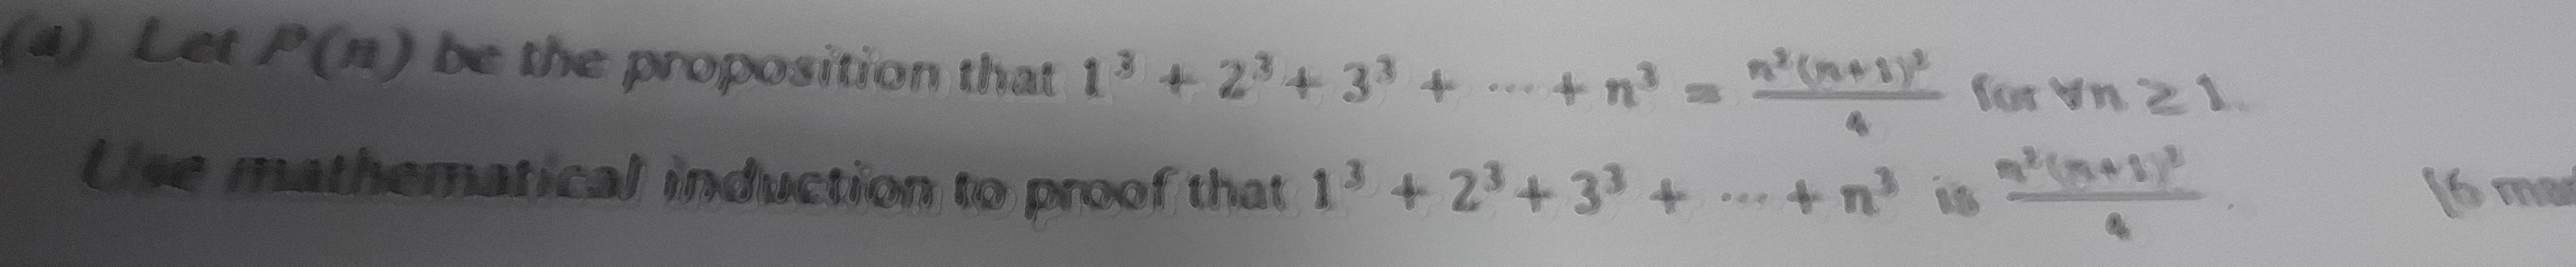 (a) Let P(n) be the proposition that 1³ + 2³ + 3³ + ⋯ + n³ = n²(n+1)²/4 for ∀n ≥ 1.
Use mathematical induction to proof that 1³ + 2³ + 3³ + ⋯ + n³ is n²(n+1)²/4. [6